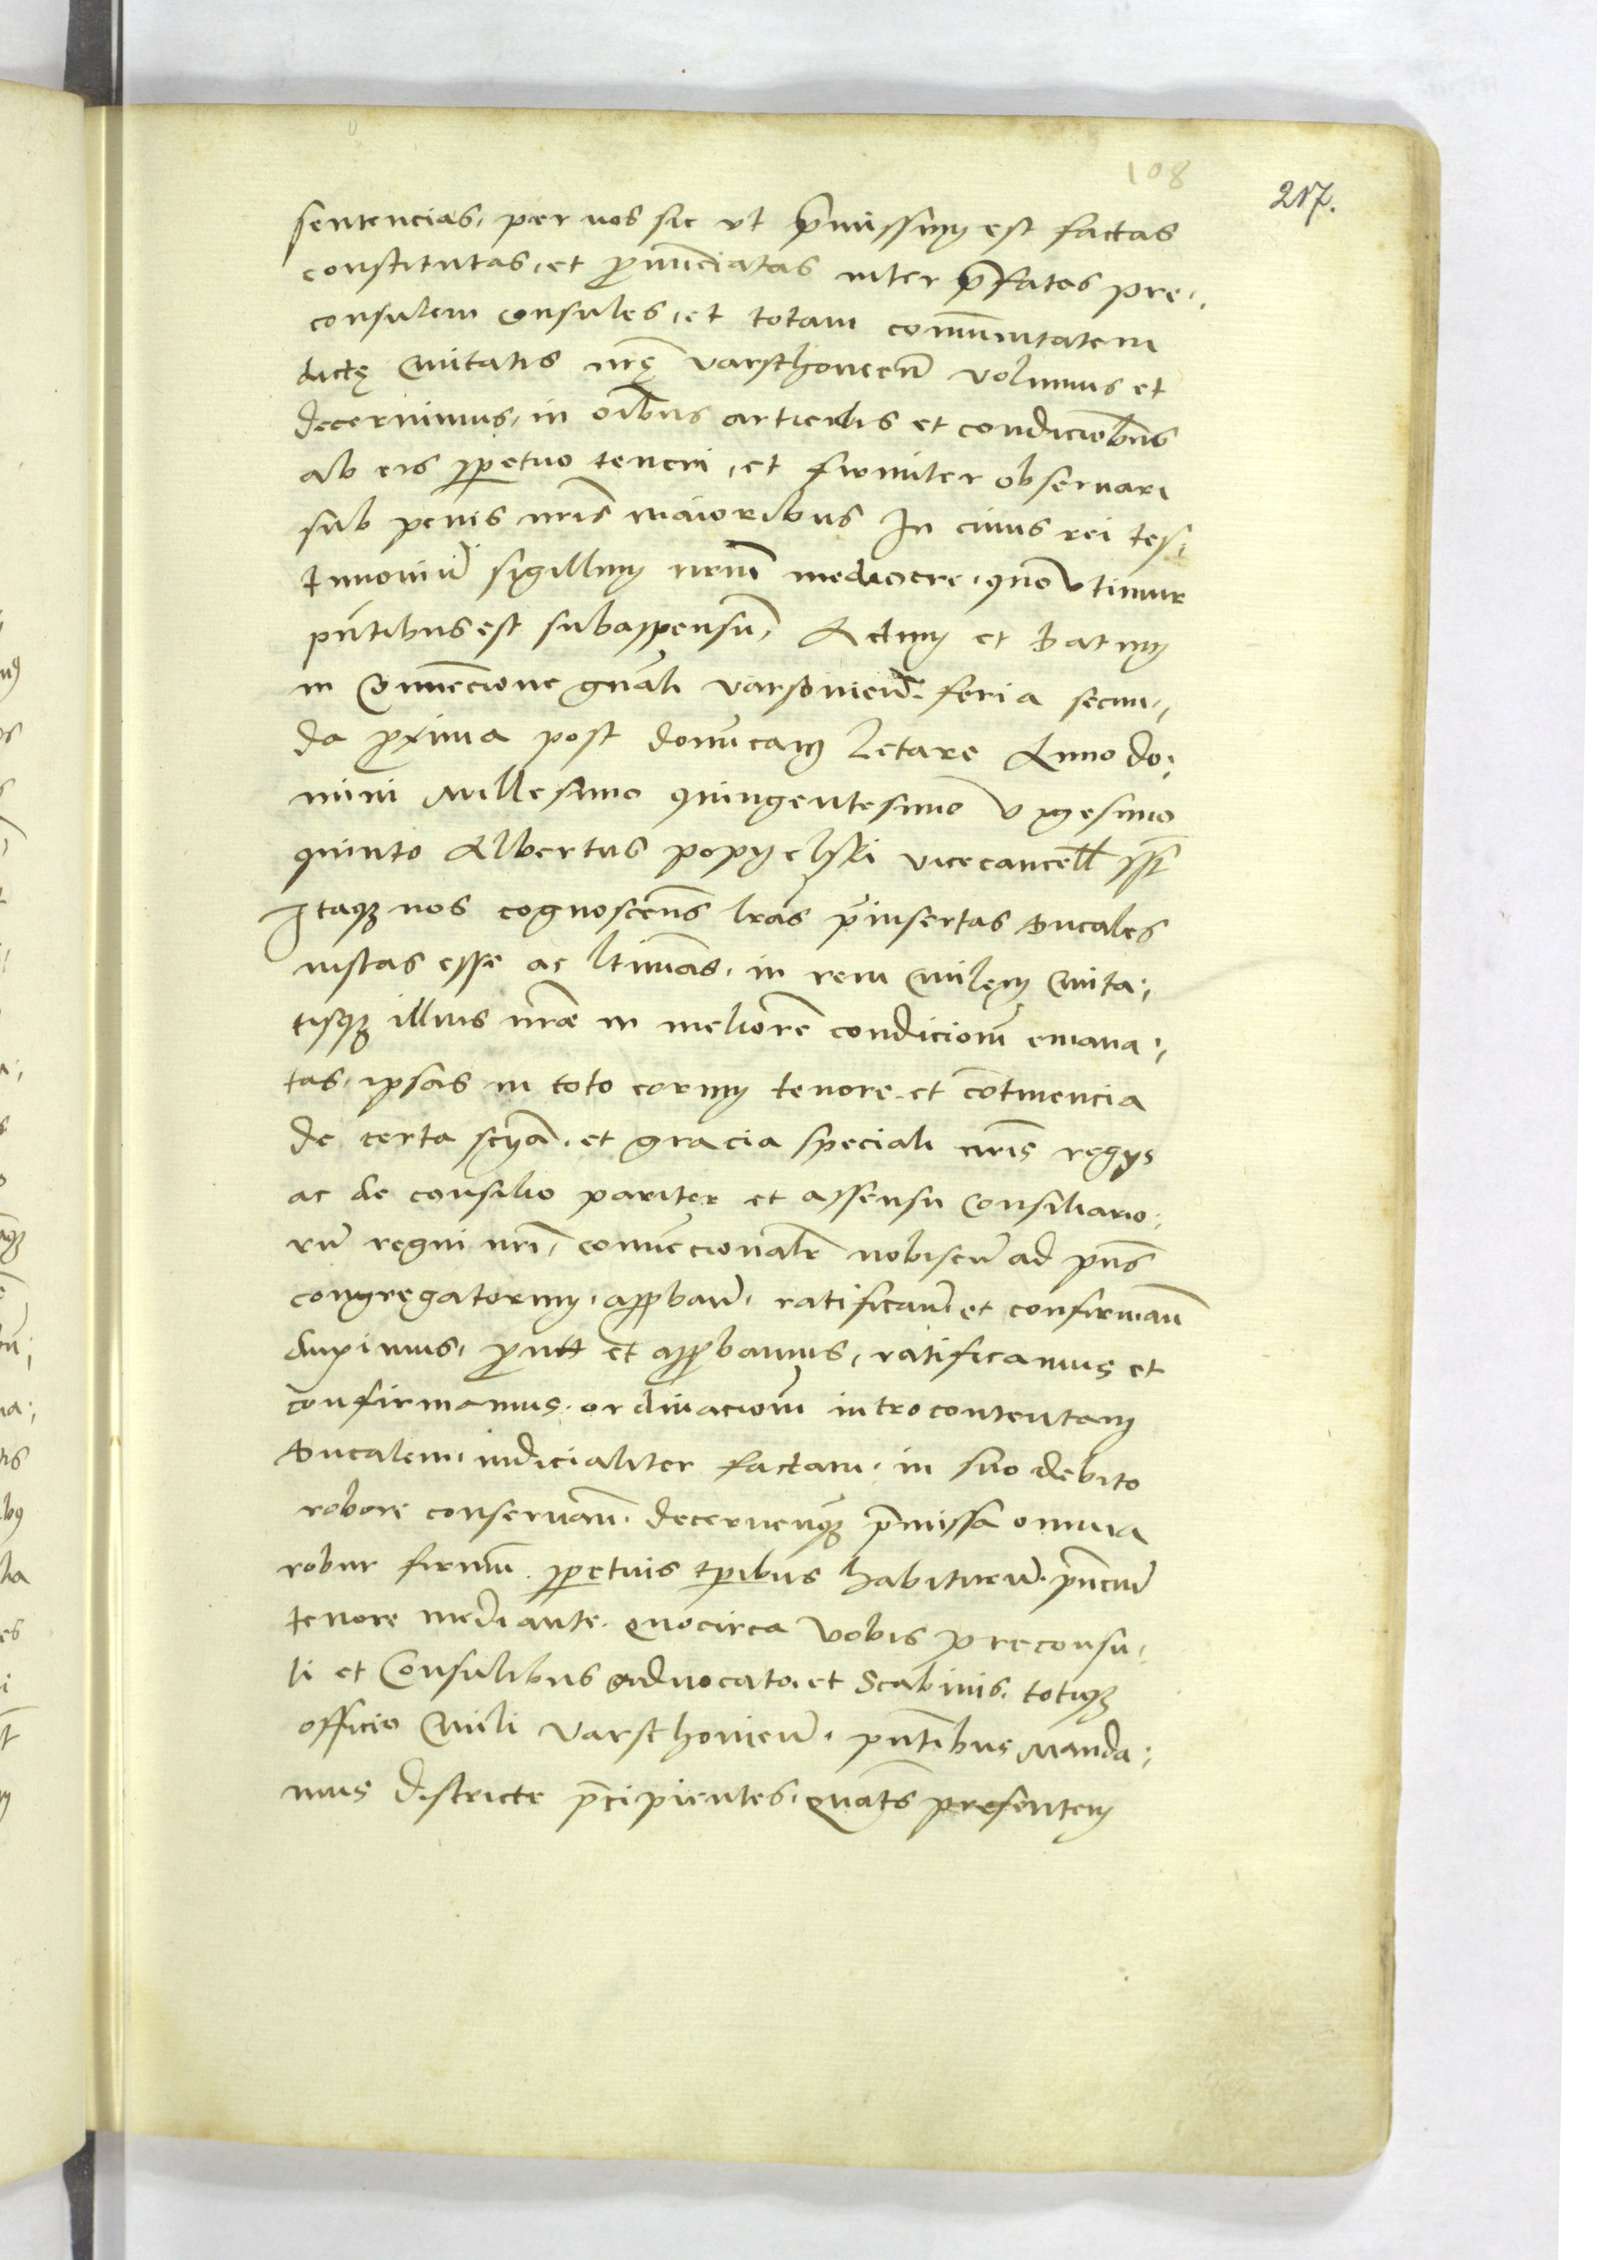 108
217.
sentencias, per nos sic ut p̄missum est factas
constitutas, et p̄nunciatas inter p̄fatos pre-
consulem consules, et totam com̄unitatem
dictę Civitatis nr̄ę Varschovien̄ volumus et
decernimus, in oībus articulis et condicioībus
ab eis ꝑpetuo teneri, et firmiter observari
sub penis nr̄is maioribus In cuius rei tes-
timoniū sigillum nr̄um mediocre, quo utimur
pn̄tibus est subappensū, Actum et Datum
in Conven̄cione gn̄ali Varsovien̄. feria secun-
da ꝓxima post don̄icam Letare Anno do-
mini Millesimo quingentesimo vigesimo
quinto Albertus popyelski vicecancell̄ sst̄
Itaqꝫ nos cognoscen̄s lr̄as p̄insertas Ducales
iustas esse ac ltimās, in rem Civilem Civita-
tisqꝫ illius nr̄æ in meliorē condicionē emana-
tas, ipsas in toto eorum tenore et con̄tinencia
de certa scīa, et gracia speciali nr̄is regijs
ac de consilio pariter et assensu Consiliario-
rū regni nr̄i, conven̄cionalr̄ nobiscū ad pn̄s
congregatorum, approband̄, ratificand̄ et confirmand̄
duximus, ꝓutt et approbamus, ratificamus et
confirmamus, ordinacionē introcontentam
Ducalem, iudicialiter factam, in suo debito
robore conservan̄. decernen̄qꝫ p̄missa omnia
robur firmū ꝑpetuis tꝑibus habiturū, pn̄ciū
tenore mediante. Quocirca vobis preconsu-
li et Consulibus advocato, et Scabinis, totiqꝫ
officio Civili Varschovien̄, pn̄tibus Manda-
mus districte p̄cipientes, quate̅s presentem